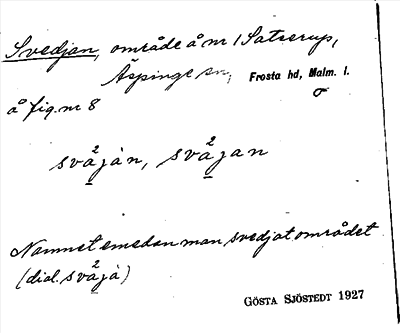 Svedjan, område å nr 1 Satserup,
Äspinge sn, Frosta hd, Malm. l.
å fig. nr 8
svåjàn, svåjan
Namnet emedan man svedjat området
(dial. svåjà)
GÖSTA SJÖSTEDT 1927